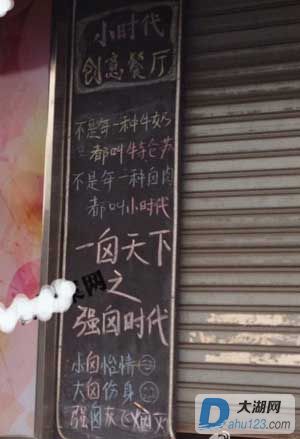 小时代
创意餐厅
不是每一种牛奶
都叫特仑苏
不是每一种卤肉
都叫小时代
一卤天下
之
强卤时代
小卤怡情
大卤伤身
强卤灰飞烟灭
网
大湖网
Dahu123.com